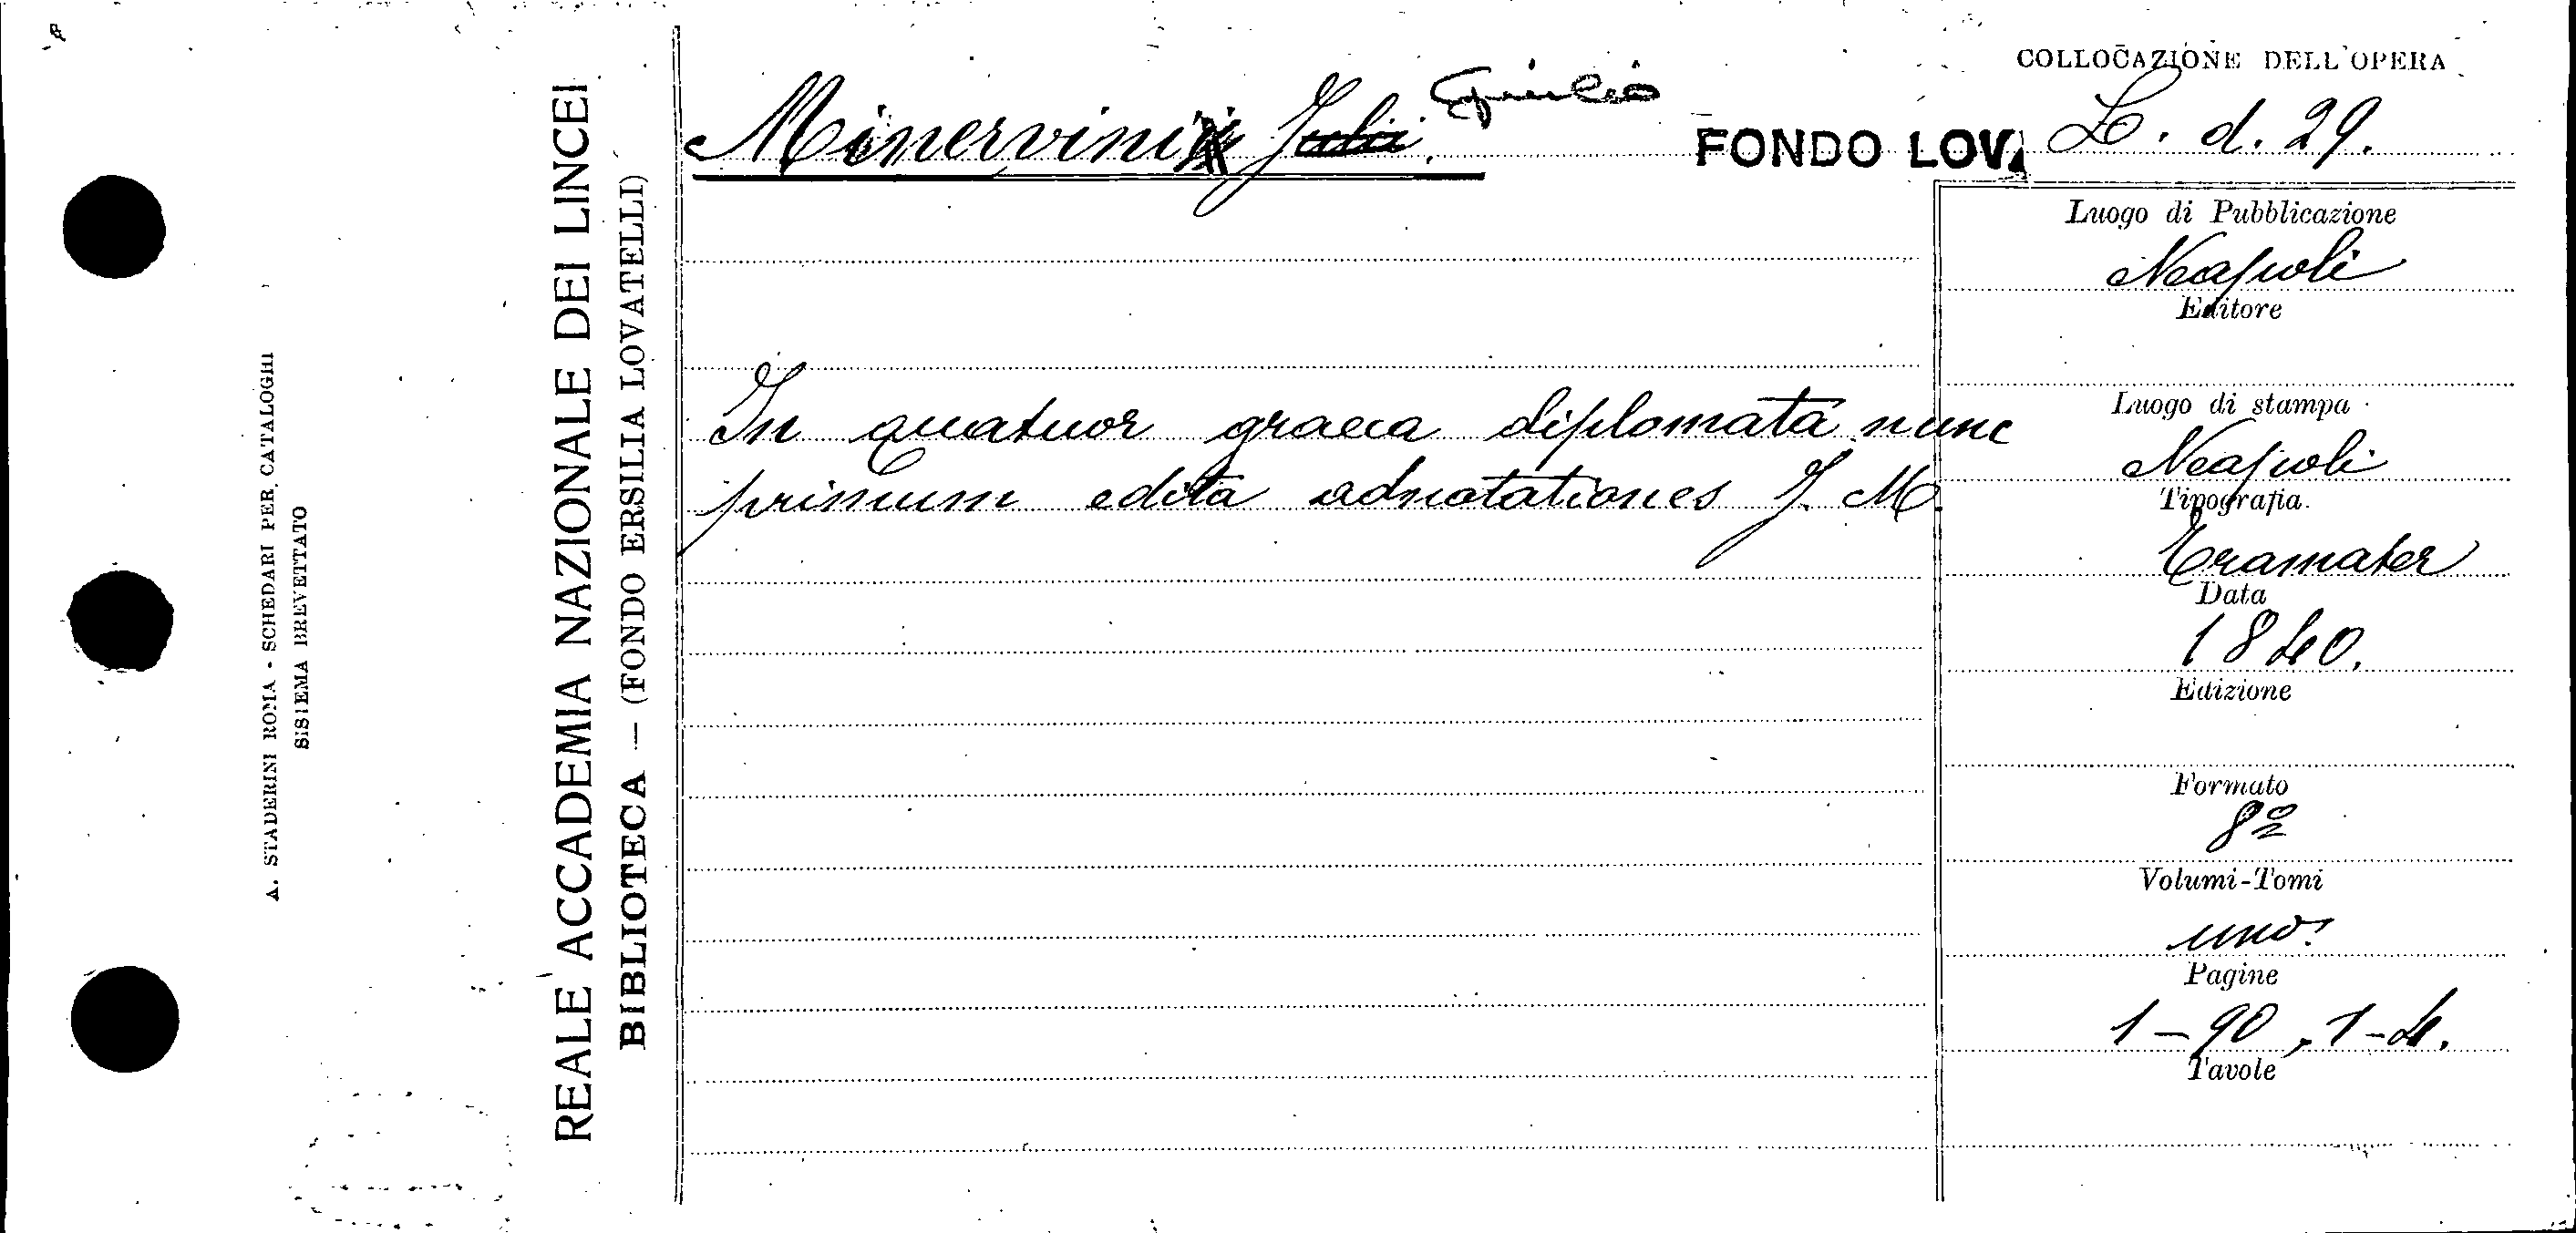 COLLOCAZIONE DELL'OPERA
Minervini Julii. Giulio
FONDO LOV. L. d. 29.
Luogo di Pubblicazione
Neapoli
Editore
In quatuor graeca diplomata nunc
primum edita adnotationes J. M.
Luogo di stampa
Neapoli
Tipografia
Tramater
Data
1840.
Edizione
Formato
8º
Volumi-Tomi
uno.
Pagine
1-90, 1-4.
Tavole
REALE ACCADEMIA NAZIONALE DEI LINCEI
BIBLIOTECA — (FONDO ERSILIA LOVATELLI)
A. STADERINI ROMA - SCHEDARI PER CATALOGHI
SISTEMA BREVETTATO